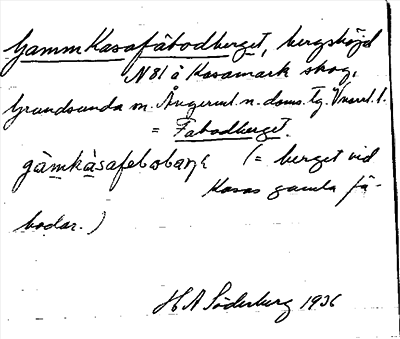 Gammkasafäbodberget, bergshöjd
N 81 å Kasamark skog,
Grundsunda m. Ångerml. n. doms. tg. Vnorrl. l.
= Fäbodberget.
gàmkàsafebobærjɛ (= berget vid
Kasas gamla fä-
bodar.)
H A Söderberg 1936